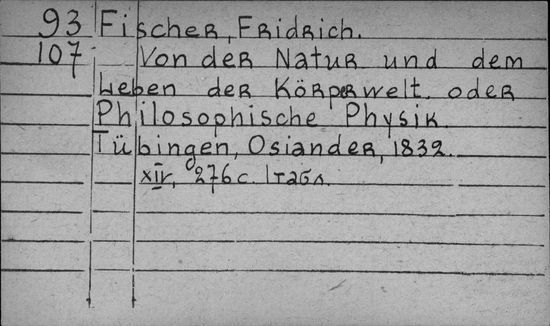 93 Fischer, Fridrich.
107 Von der Natur und dem
Leben der Körperwelt oder
Philosophische Physik.
Tübingen, Osiander, 1832.
276 с. 1 табл.